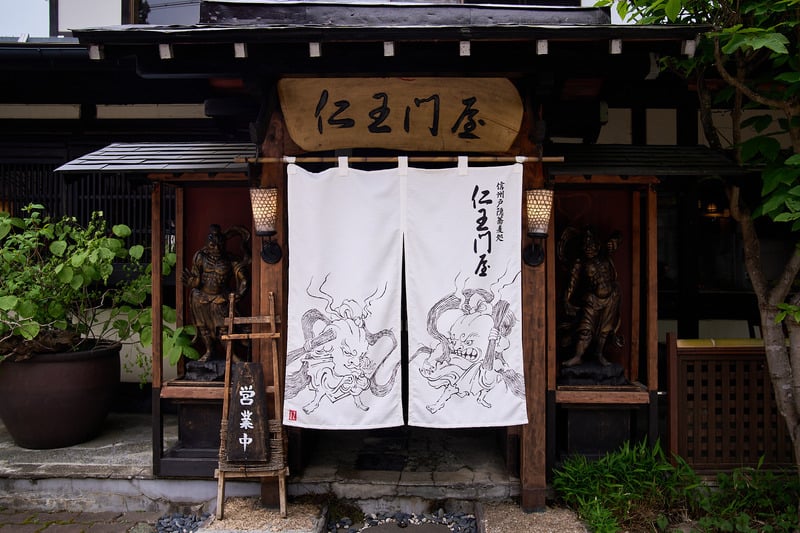 仁王門屋
信州戸隠蕎麦処
仁王門屋
営業中